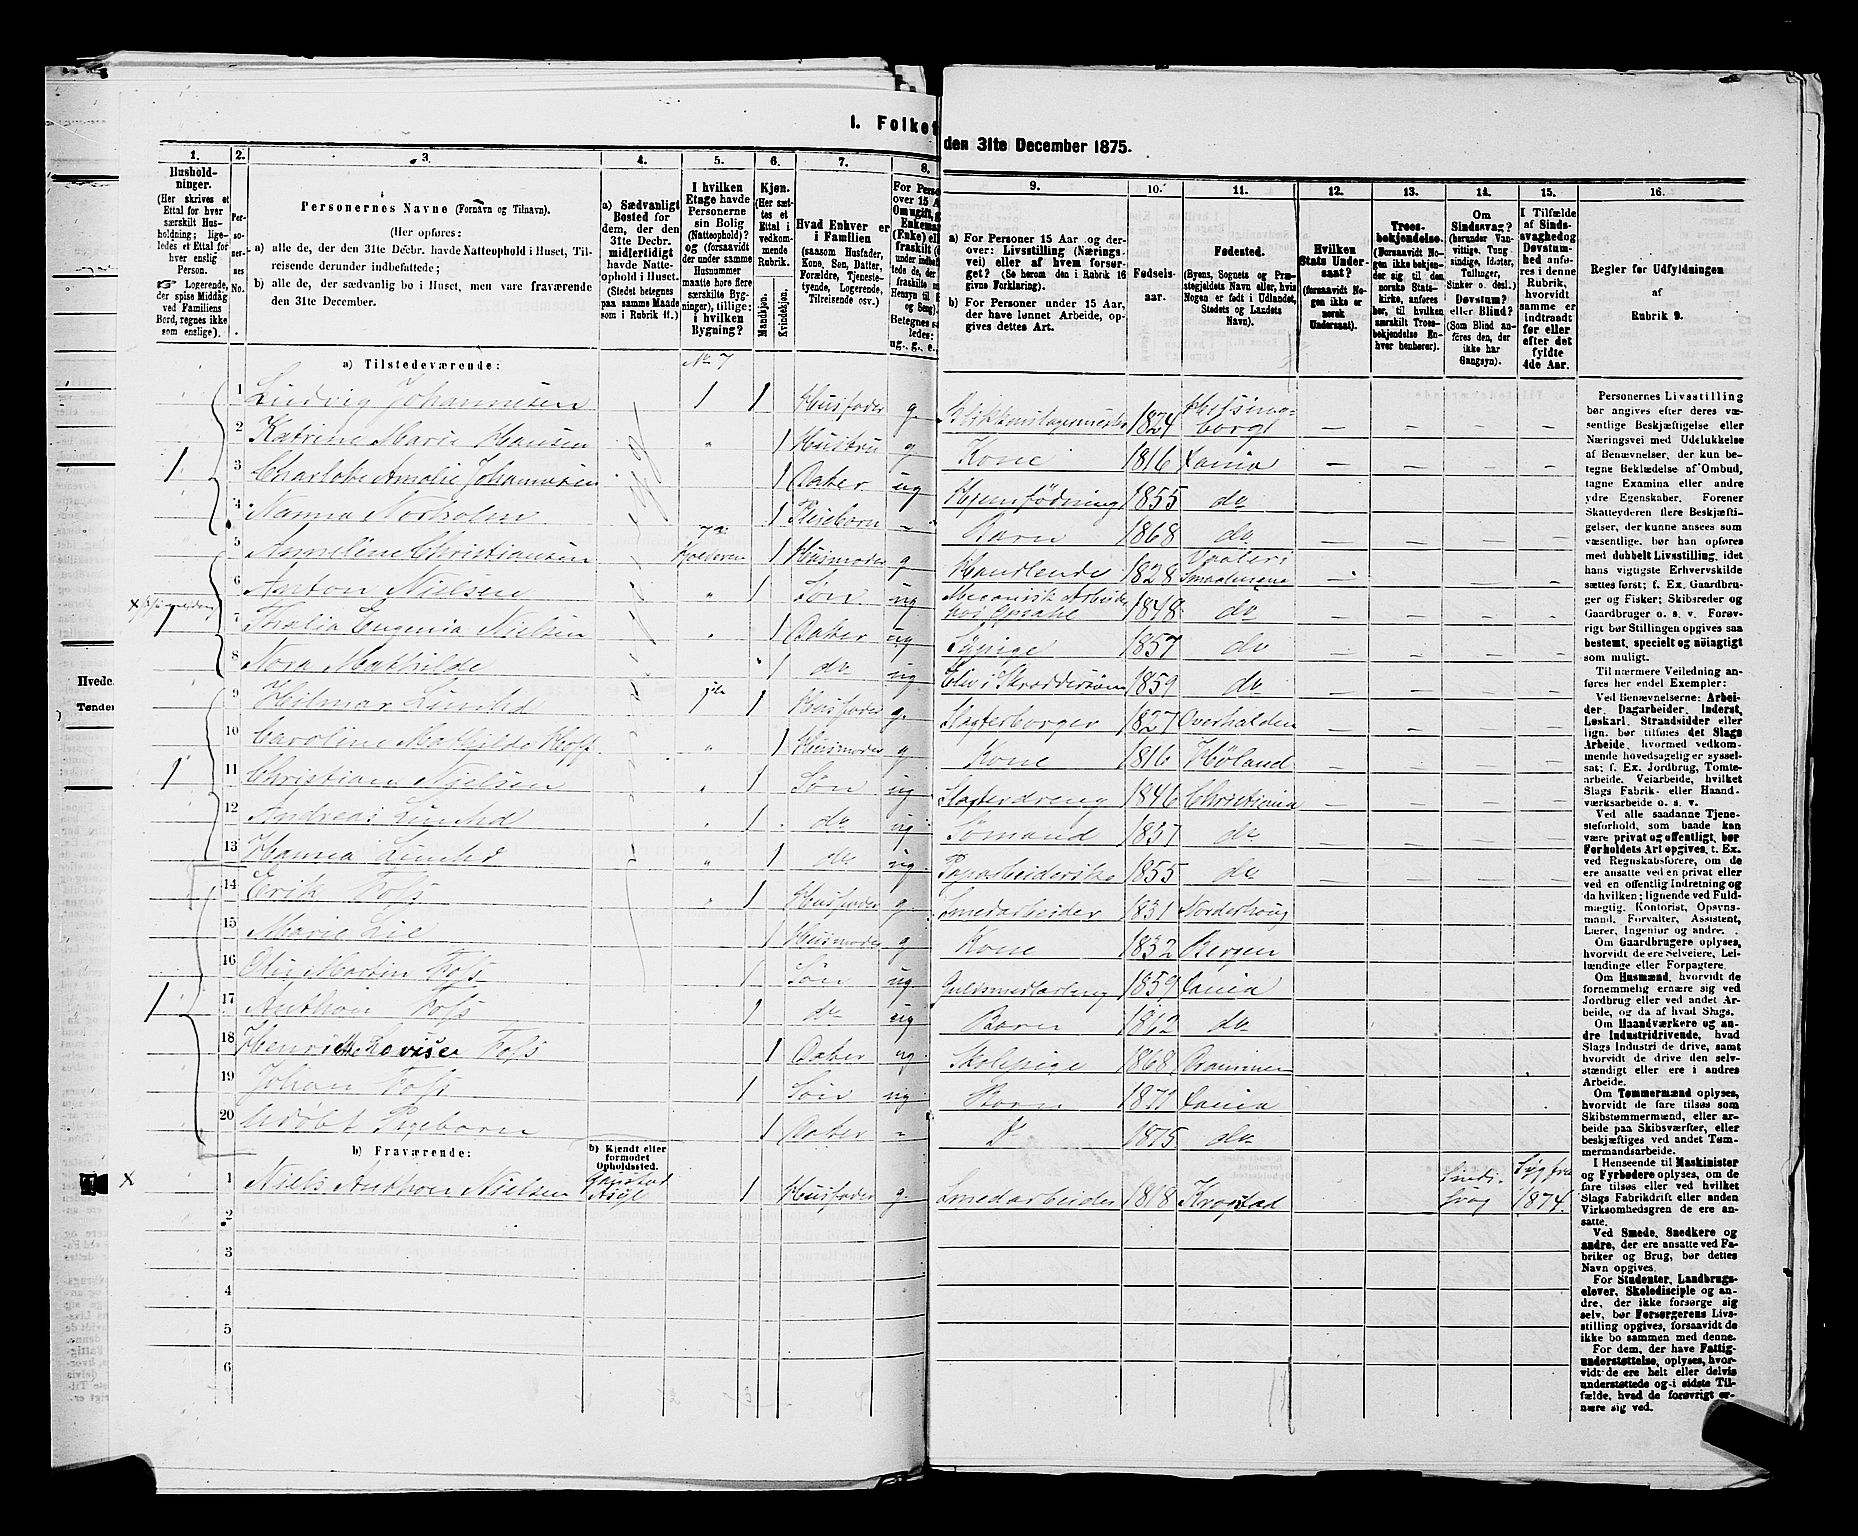 I. Folket
den 31te December 1875.
1. 2. 3. 4. 5. 6. 7. 8. 9. 10. 11. 12. 13. 14. 15. 16.
Hushold-
ninger.
(Her skrives et
Ettal for hver
særskilt Hus-
holdning; lige-
ledes et Ettal for
hver enslig
Person.
Logerende,
der spise Middag
ved Familiens
Bord, regnes ikke
som enslige).
Per-
so-
ner-
nes
No.
Personernes Navne (Fornavn og Tilnavn).
(Her opføres:
a) alle de, der den 31te Decbr. havde Natteophold i Huset, Til-
reisende derunder indbefattede;
b) alle de, der sædvanlig bo i Huset, men vare fraværende
den 31te December.
a) Sædvanligt
Bosted for
dem, der den
31te Decbr.
midlertidigt
havde Natte-
ophold i Huset.
(Stedet betegnes
paa samme Maade
som i Rubrik 11.)
I hvilken
Etage havde
Personerne
sin Bolig
(Natteophold)?
og (forsaavidt
der under samme
Husnummer
maatte høre flere
særskilte Byg-
ninger), tillige:
i hvilken
Bygning?
Kjøn.
(Her sæt-
tes et
Ettal i
vedkom-
mende
Rubrik.
Mandkjøn.
Kvindekjøn.
Hvad Enhver er
i Familien
(saasom Husfader,
Kone, Søn, Datter,
Forældre, Tjeneste-
tyende, Logerende,
Tilreisende osv.)
a) For Personer 15 Aar og der-
over: Livsstilling (Nærings-
vei) eller af hvem forsør-
get? (Se herom den i Rubrik 16
givne Forklaring).
b) For Personer under 15 Aar,
der have lønnet Arbeide, op-
gives dettes Art.
Fødsels-
aar.
Fødested.
(Byens, Sognets og Præ-
stegjeldets Navn eller, hvis
Nogen er født i Udlandet,
Stedets og Landets
Navn).
Hvilken
Stats Under-
saat?
(forsaavidt No-
gen ikke er
norsk
Undersaat).
Troes-
bekjendelse.
(Forsaavidt No-
gen ikke bekjen-
der sig til den
norske Stats-
kirke, anføres
her, til hvilken
særskilt Troes-
bekjendelse En-
hver henhører).
Om
Sindssvag?
(herunder Van-
vittige, Tung-
sindige, Idioter,
Tullinger,
Sinker o. desl.)
Døvstum?
eller Blind?
(Som Blind an-
føres den, der
ikke har
Gangsyn).
I Tilfælde
af Sinds-
svaghed og
Døvstum-
hed anfø-
res i denne
Rubrik,
hvorvidt
samme er
indtraadt
før eller
efter det
fyldte
4de Aar.
Regler for Udfyldningen
af
Rubrik 9.
a) Tilstedeværende: No 7
1 Ludvig Johannesen 1 1 Husfader g. 1824
2 Katrine Marie Hansen " 1 Hustru g Kone 1816 Cania
3 Charlotte Amalie Johannesen 1 Dater ug Hjemfødning 1855 do
4 Nanna Norholm 1 Pleiebarn - Barn 1868 do
5 Annelene Christiansen 1 Husmoder g Handlende 1828 Smaalenene
6 Anton Nielsen " 1 Søn ug Mecanisk Arbeider 1848 do
7 Thalia Eugenia Nielsen " 1 Dater ug Sypige 1857 do
8 Nora Mathilde " 1 do ug Elev i Skræddersøm 1859 do
9 Hilmar Lunhd 1 Husfader g. Slagterborger 1827 Overhalden
10 Caroline Mathilde Hoff " 1 Husmoder g Kone 1816 Høland
11 Christian Nielsen " 1 Søn ug Slagterdreng 1846 Christiania
12 Andreas Lunhd " 1 do ug Sømand 1851 do
13 Hanna Lunhd " 1 do ug 1855 do
14 Erik Foss " 1 Husfader g. Smedarbeider 1831 Norderhoug
15 Marie Lie 1 Husmoder g Kone 1832 Bergen
16 Martin Foss 1 Søn ug 1859 Cania
17 Anthon Foss 1 do ug Barn 1862 do
18 Henriette Lovise Foss 1 Dater ug Skolepige 1868 Drammen
19 Johan Foss 1 Søn ug Barn 1871 Cania
20 Udøbt Pigebarn 1 Dater - Do 1875 do
b) Fraværende:
b) Kjendt eller
formodet
Opholdssted.
1 Niels Anthon Nielsen Gaustad Asyl 1 Husfader g. Smedarbeider 1818 Krogstad Sindssvag 1874.
2
3
4
5
6
Personernes Livsstilling
bør angives efter deres væ-
sentlige Beskjæftigelse eller
Næringsvei med Udelukkelse
af Benævnelser, der kun be-
tegne Beklædelse af Ombud,
tagne Examina eller andre
ydre Egenskaber. Forener
Skatteyderen flere Beskjæfti-
gelser, der kunne ansees som
væsentlige, bør han opføres
med dobbelt Livsstilling, idet
hans vigtigste Erhvervskilde
sættes først; f. Ex. Gaardbru-
ger og Fisker; Skibsreder og
Gaardbruger o. s. v. Forøv-
rigt bør Stillingen opgives saa
bestemt, specielt og nöiagtigt
som muligt.
Til nærmere Veiledning an-
føres her endel Exempler:
Ved Benævnelserne: Arbei-
der, Dagarbeider, Inderst,
Løskarl, Strandsidder eller
lign. bør tilføies det Slags
Arbeide, hvormed vedkom-
mende hovedsagelig er syssel-
sat; f. Ex. Jordbrug, Tomte-
arbeide, Veiarbeide, hvilket
Slags Fabrik- eller Haand-
værksarbeide o. s. v.
Ved alle saadanne Tjene-
steforhold, som baade kan
være privat og offentligt, bør
Forholdets Art opgives, f. Ex.
ved Regnskabsførere, om de
ere ansatte ved en privat eller
ved en offentlig Indretning og
da hvilken; lignende ved Fuld-
mægtig, Kontorist, Opsyns-
mand, Forvalter, Assistent,
Lærer, Ingeniør og andre.
Om Gaardbrugere oplyses,
hvorvidt de ere Selveiere, Lei-
lændinge eller Forpagtere.
Om Husmænd, hvorvidt de
fornemmelig ernære sig ved
Jordbrug eller ved andet Ar-
beide, og da af hvad Slags.
Om Haandværkere og an-
dre Industridrivende, hvad
Slags Industri de drive, samt
hvorvidt de drive den selv-
stændigt eller ere i andres
Arbeide.
Om Tømmermænd oplyses,
hvorvidt de fare tilsøs som
Skibstømmermænd, eller ar-
beide paa Skibsværfter, eller
beskjæftiges ved andet Tøm-
mermandsarbeide.
I Henseende til Maskinister
og Fyrbødere oplyses, om de
fare tilsøs eller ved hvilket
Slags Fabrikdrift eller anden
Virksomhedsgren de ere an-
satte.
Ved Smede, Snedkere og
andre, der ere ansatte ved Fa-
briker og Brug, bør dettes
Navn opgives.
For Studenter, Landbrugs-
elever, Skoledisciple og an-
dre, der ikke forsørge sig
selv, bør Forsørgerens Livs-
stilling opgives, forsaavidt de
ikke bo sammen med denne.
For dem, der have Fattig-
understøttelse, oplyses, hvor-
vidt de ere helt eller delvis
understøttede og i sidste Til-
fælde, hvad de forøvrigt er-
nære sig ved.
Hvede.
Tønder